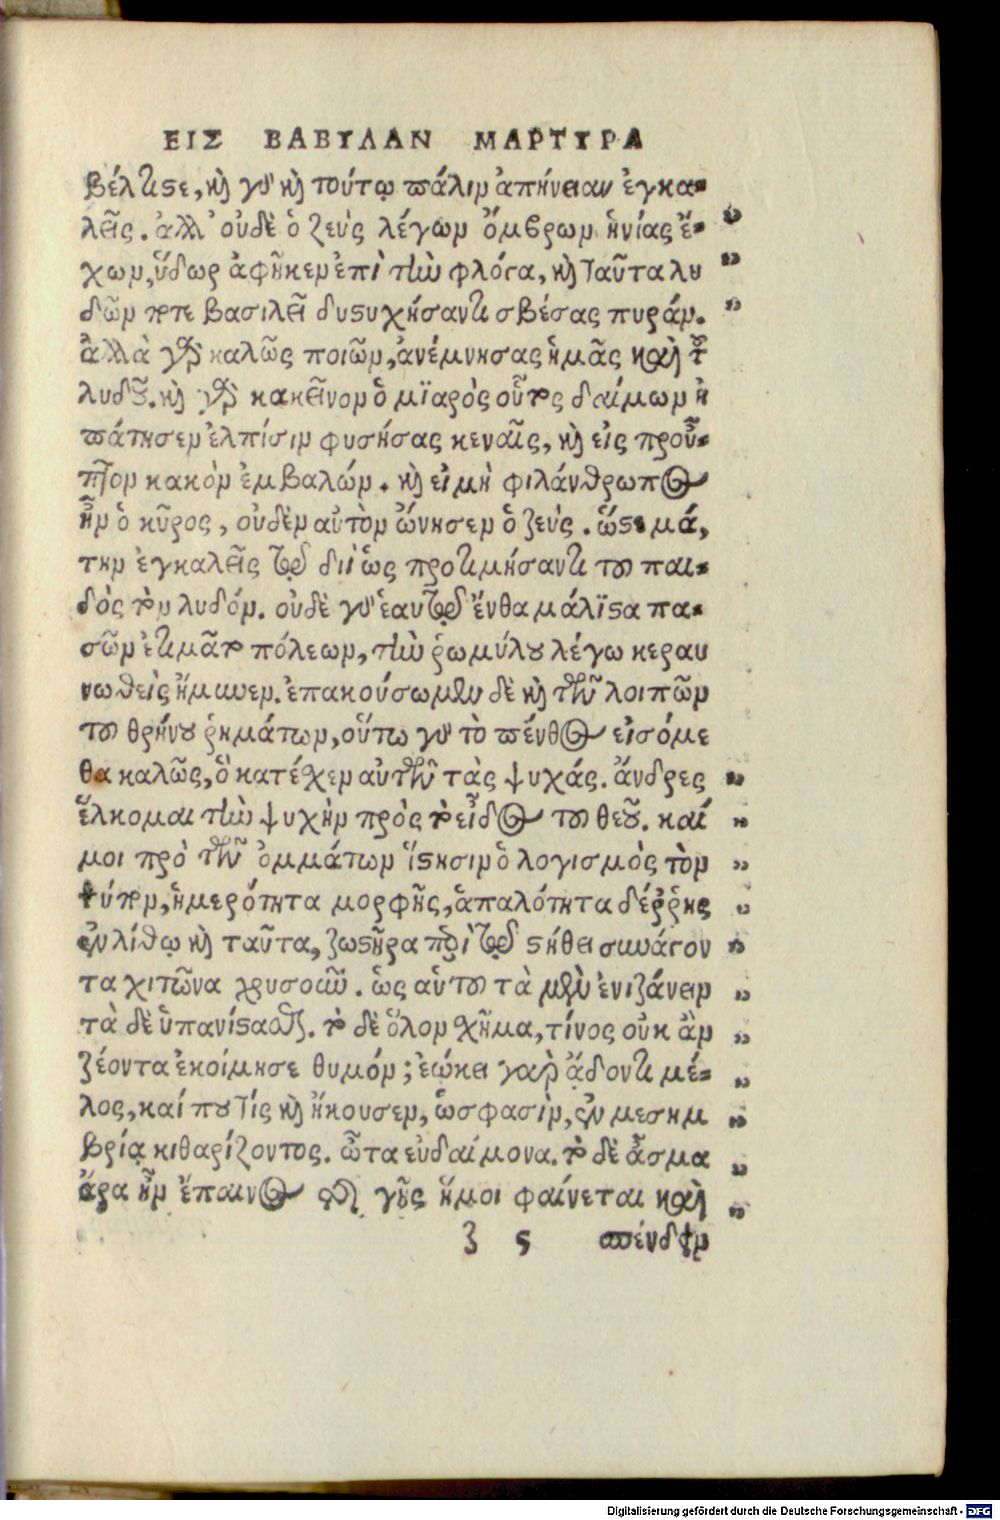 ΕΙΣ ΒΑΒΥΛΑΝ ΜΑΡΤΥΡΑ
βέλτιστε, καὶ γὰρ καὶ τούτῳ πάλιν ἀπήνειαν ἐγκα-
λεῖς. ἀλλ' οὐδὲ ὁ ζεὺς λέγων ὄμβρων ἡνίας ἔ-
χων, ὕδωρ ἀφῆκεν ἐπὶ τὴν φλόγα, καὶ ταῦτα λυ
δῶν ποτε βασιλεῖ δυστυχήσαντι σβέσας πυράν.
ἀλλὰ γὰρ καλῶς ποιῶν, ἀνέμνησας ἡμᾶς καὶ τοῦ
λυδοῦ. καὶ γὰρ κακεῖνον ὁ μϊαρὸς οὗτος δαίμων ἠ
πάτησεν ἐλπίσιν φυσήσας κεναῖς, καὶ εἰς προῦ-
πτον κακὸν ἐμβαλών. καὶ εἰ μὴ φιλάνθρωπος
ἦν ὁ κῦρος, οὐδὲν αὐτὸν ὤνησεν ὁ ζεύς. ὥστε μά,
την ἐγκαλεῖς τῷ διῒ ὡς προτιμήσαντι τοῦ παι-
δὸς τὸν λυδόν. οὐδὲ γὰρ ἑαυτῷ ἔνθα μάλϊστα πα-
σῶν ἐτιμᾶτο πόλεων, τὴν ῥωμύλου λέγω κεραυ
νωθεὶς ἤμυνεν. ἐπακούσωμεν δὲ καὶ τῶν λοιπῶν
τοῦ θρήνου ῥημάτων, οὕτω γὰρ τὸ πένθος εἰσόμε
θα καλῶς, ὃ κατέχεν αὐτῶν τὰς ψυχάς. ἄνδρες
ἕλκομαι τὴν ψυχὴν πρὸς τὸ εἶδος τοῦ θεοῦ. καί
μοι πρὸ τῶν ὀμμάτων ἵστησιν ὁ λογισμὸς τὸν
τύπον, ἡμερότητα μορφῆς, ἁπαλότητα δέρρης
ἐν λίθῳ καὶ ταῦτα, ζωστῆρα περὶ τῷ στήθει συνάγον
τα χιτῶνα χρυσοῦν. ὡς αὑτοῦ τὰ μὲν ἐνιζάνειν
τὰ δὲ ὑπανίστασθαι. τὸ δὲ ὅλον χῆμα, τίνος οὐκ ἂν
ζέοντα ἐκοίμησε θυμόν; ἐῴκει γὰρ ᾄδοντι μέ-
λος, καί που τίς καὶ ἤκουσεν, ὥσφασὶν, ἐν μεσημ
βρίᾳ κιθαρίζοντος. ὦτα εὐδαίμονα. τὸ δὲ ᾆσμα
ἄρα ἦν ἔπαινος τῆς γῆς ἥ μοι φαίνεται καὶ
ζ ς σπένδειν
Digitalisierung gefördert durch die Deutsche Forschungsgemeinschaft - DFG